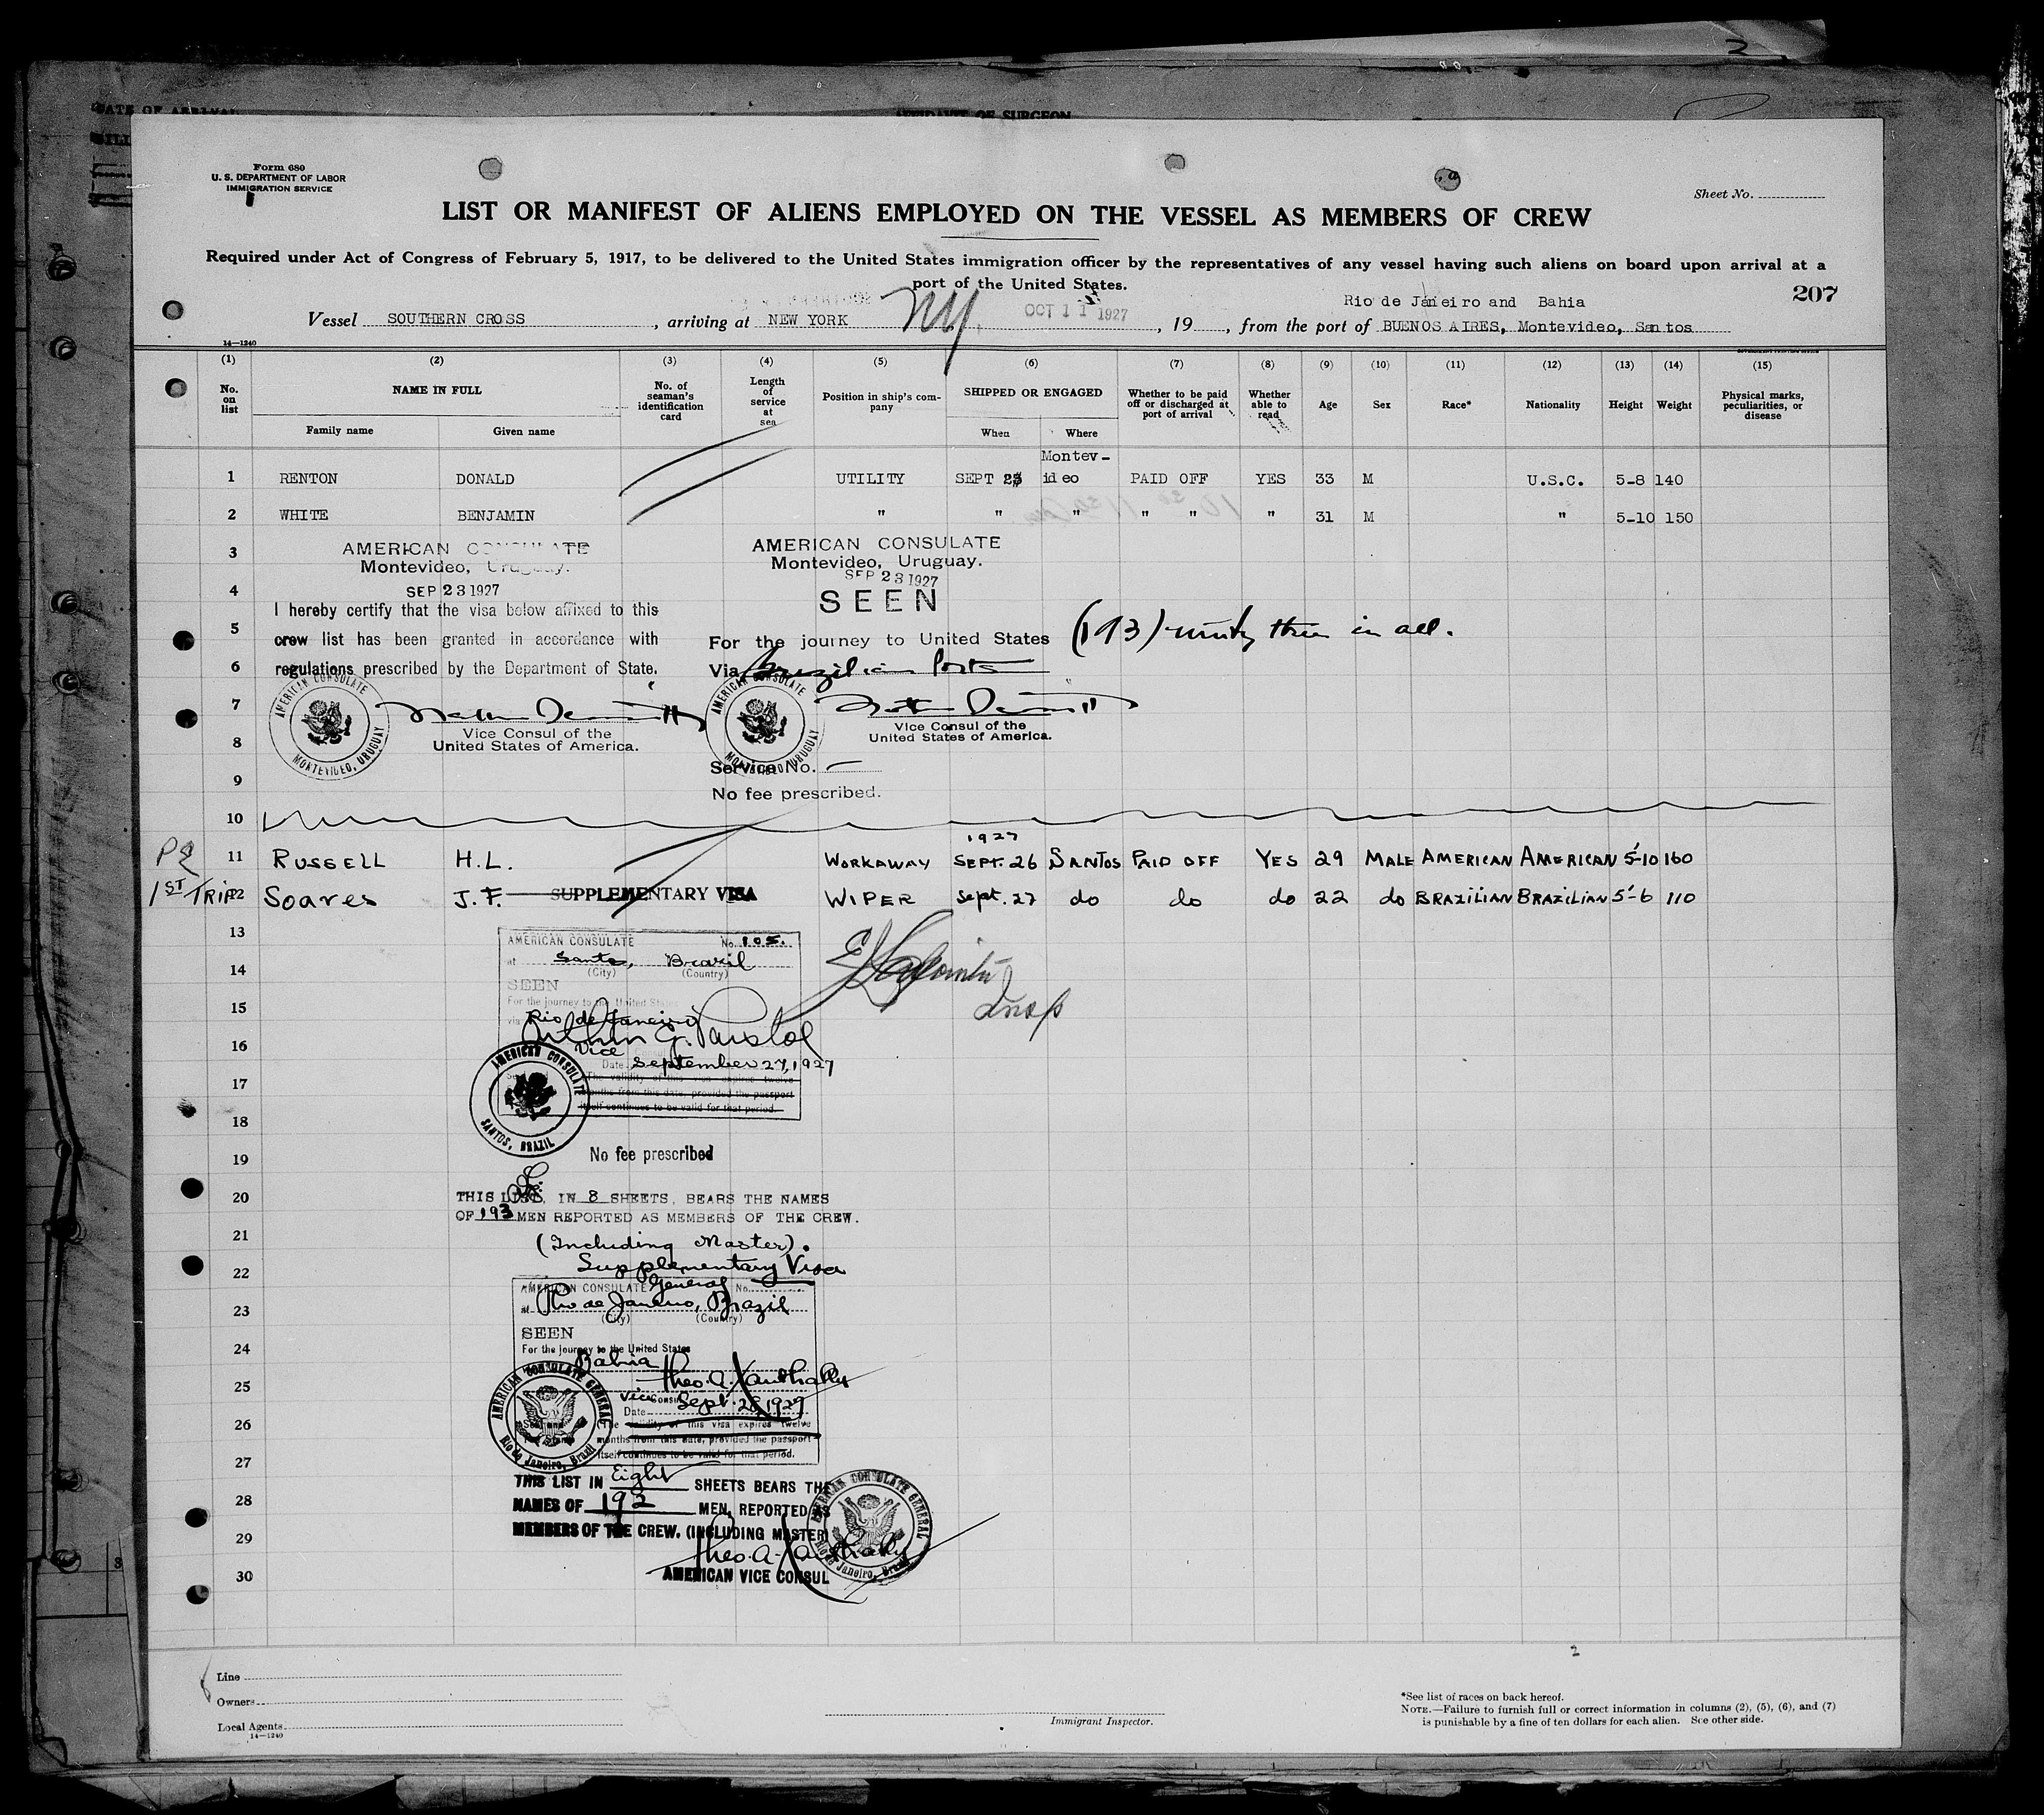 2
DATE OF ARRIVAL
AFFIDAVIT OF SURGEON
Form 680
U. S. DEPARTMENT OF LABOR
IMMIGRATION SERVICE
Sheet No.
LIST OR MANIFEST OF ALIENS EMPLOYED ON THE VESSEL AS MEMBERS OF CREW
Required under Act of Congress of February 5, 1917, to be delivered to the United States immigration officer by the representatives of any vessel having such aliens on board upon arrival at a
port of the United States.
207
Rio de Janeiro and Bahia
Vessel SOUTHERN CROSS, arriving at NEW YORK NY. OCT 11 1927, 19, from the port of BUENOS AIRES, Montevideo, Santos
14—1240
(1) (2) (3) (4) (5) (6) (7) (8) (9) (10) (11) (12) (13) (14) (15)
No. on list NAME IN FULL No. of seaman's identification card Length of service at sea Position in ship's company SHIPPED OR ENGAGED Whether to be paid off or discharged at port of arrival Whether able to read Age Sex Race* Nationality Height Weight Physical marks, peculiarities, or disease
Family name Given name When Where
Montev-
1 RENTON DONALD UTILITY SEPT 23 ideo PAID OFF YES 33 M U.S.C. 5-8 140
2 WHITE BENJAMIN " " " " " " 31 M " 5-10 150
3 AMERICAN CONSULATE AMERICAN CONSULATE
Montevideo, Uruguay. Montevideo, Uruguay.
4 SEP 23 1927 SEP 23 1927
SEEN
I hereby certify that the visa below affixed to this
5 crew list has been granted in accordance with For the journey to United States (193) ninety three in all.
6 regulations prescribed by the Department of State. Via Brazilian Ports
7
AMERICAN CONSULATE MONTEVIDEO, URUGUAY AMERICAN CONSULATE MONTEVIDEO, URUGUAY
Vice Consul of the Vice Consul of the
8 United States of America. United States of America.
Service No. —
9
No fee prescribed.
10
1927
11 RUSSELL H.L. WORKAWAY SEPT. 26 SANTOS PAID OFF YES 29 MALE AMERICAN AMERICAN 5-10 160
1ST TRIP 12 Soares J.F. SUPPLEMENTARY VISA WIPER Sept. 27 do do do 22 do BRAZILIAN BRAZILIAN 5-6 110
13
AMERICAN CONSULATE No. 105.
at Santos, Brazil
(City) (Country)
14
SEEN
For the journey to the United States
15
Insp
via Rio de Janeiro
16
Vice Consul
Date September 27, 1927
17
The validity of this visa expires twelve
months from this date, provided the passport
itself continues to be valid for that period.
AMERICAN CONSULATE SANTOS, BRAZIL
18
19 No fee prescribed
20 THIS LIST, IN 8 SHEETS, BEARS THE NAMES
OF 193 MEN REPORTED AS MEMBERS OF THE CREW.
21
(Including Master).
Supplementary Visa
22
AMERICAN CONSULATE General No.
23 at Rio de Janeiro, Brazil
(City) (Country)
SEEN
24 For the journey to the United States
Bahia
25 Theo. A. Xanthaky
Vice Consul
Date Sept. 28, 1927
26 The validity of this visa expires twelve
months from this date, provided the passport
itself continues to be valid for that period.
AMERICAN CONSULATE GENERAL Rio de Janeiro, Brazil
27
THIS LIST IN Eight SHEETS BEARS THE
28 NAMES OF 193 MEN, REPORTED AS
29 MEMBERS OF THE CREW. (INCLUDING MASTER)
Theo. A. Xanthaky
30 AMERICAN VICE CONSUL
AMERICAN CONSULATE GENERAL Rio de Janeiro, Brazil
2
Line
Owners
Local Agents
14—1240
Immigrant Inspector.
*See list of races on back hereof.
NOTE.—Failure to furnish full or correct information in columns (2), (5), (6), and (7)
is punishable by a fine of ten dollars for each alien. See other side.